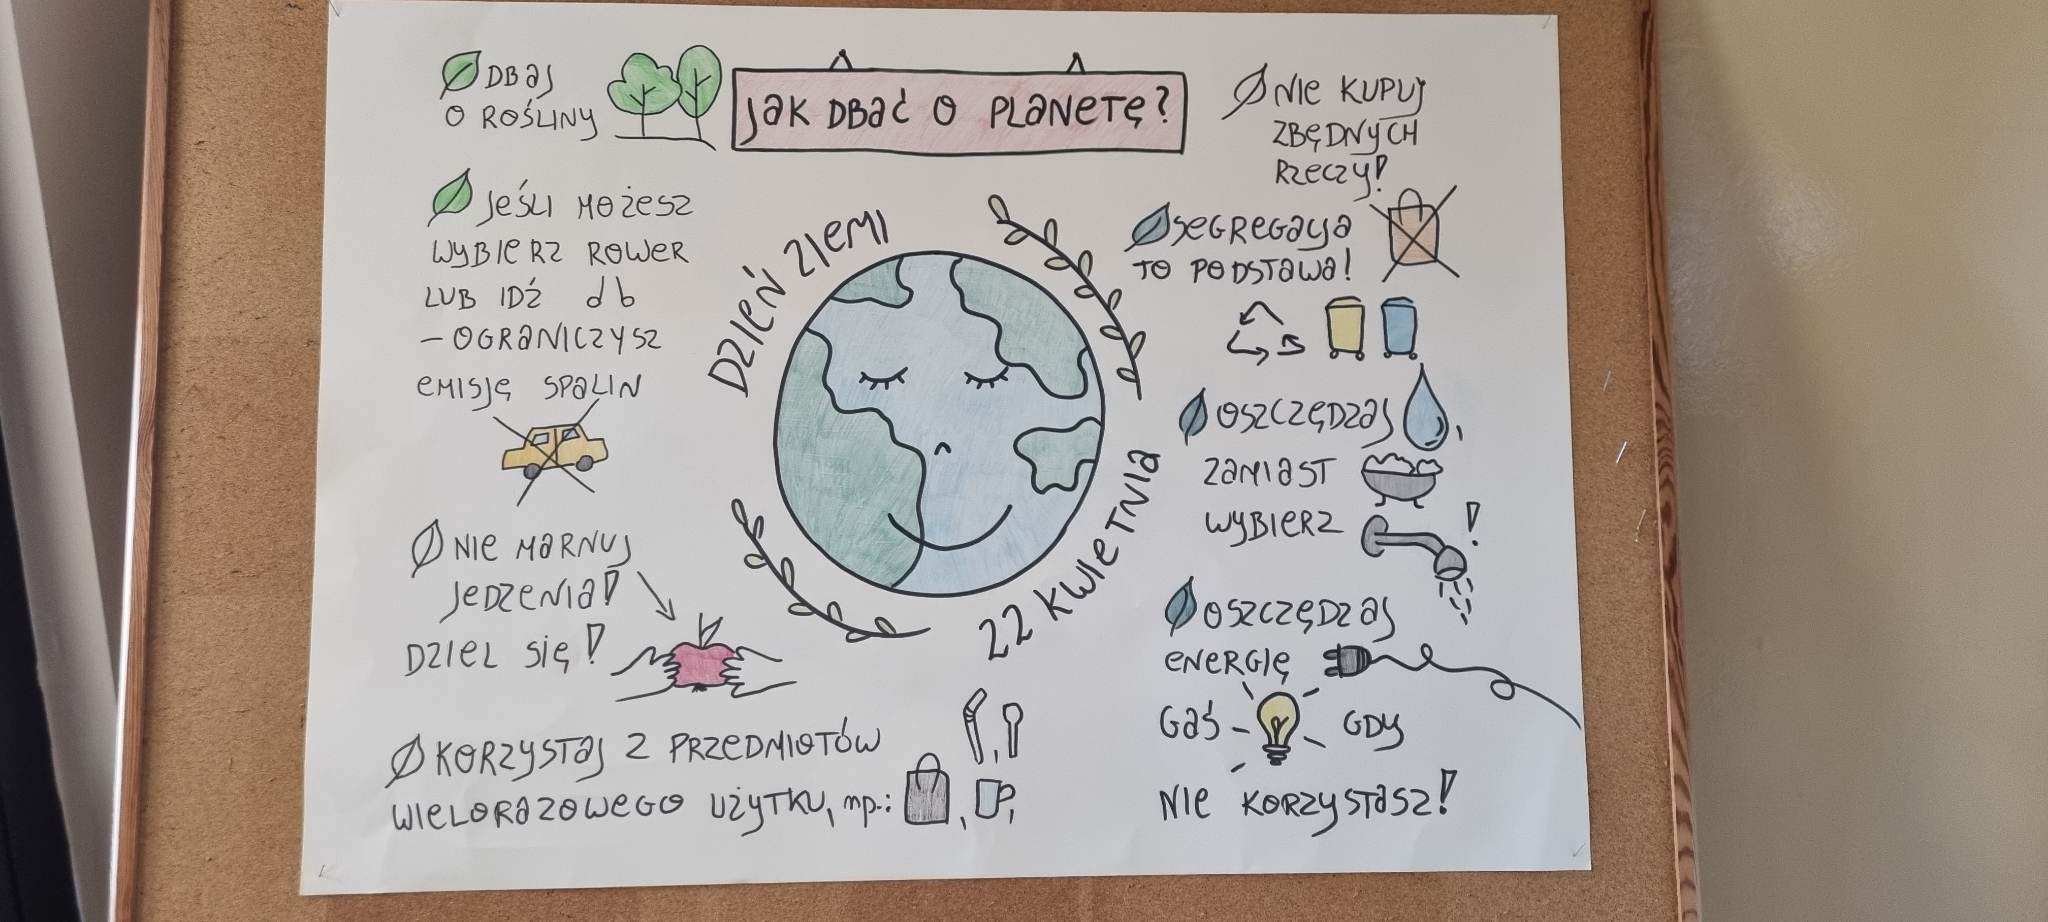 JAK DBAĆ O PLANETĘ?
DBAJ
O ROŚLINY
JEŚLI MOŻESZ
WYBIERZ ROWER
LUB IDŹ d b
- OGRANICZYSZ
EMISJĘ SPALIN
NIE MARNUJ
JEDZENIA!
DZIEL SIĘ!
KORZYSTAJ Z PRZEDMIOTÓW
WIELORAZOWEGO UŻYTKU, np.:
DZIEŃ ZIEMI
22 KWIETNIA
NIE KUPUJ
ZBĘDNYCH
RZECZY!
SEGREGACJA
TO PODSTAWA!
OSZCZĘDZAJ ,
ZAMIAST
WYBIERZ !
OSZCZĘDZAJ
ENERGIĘ
GAŚ GDY
NIE KORZYSTASZ!